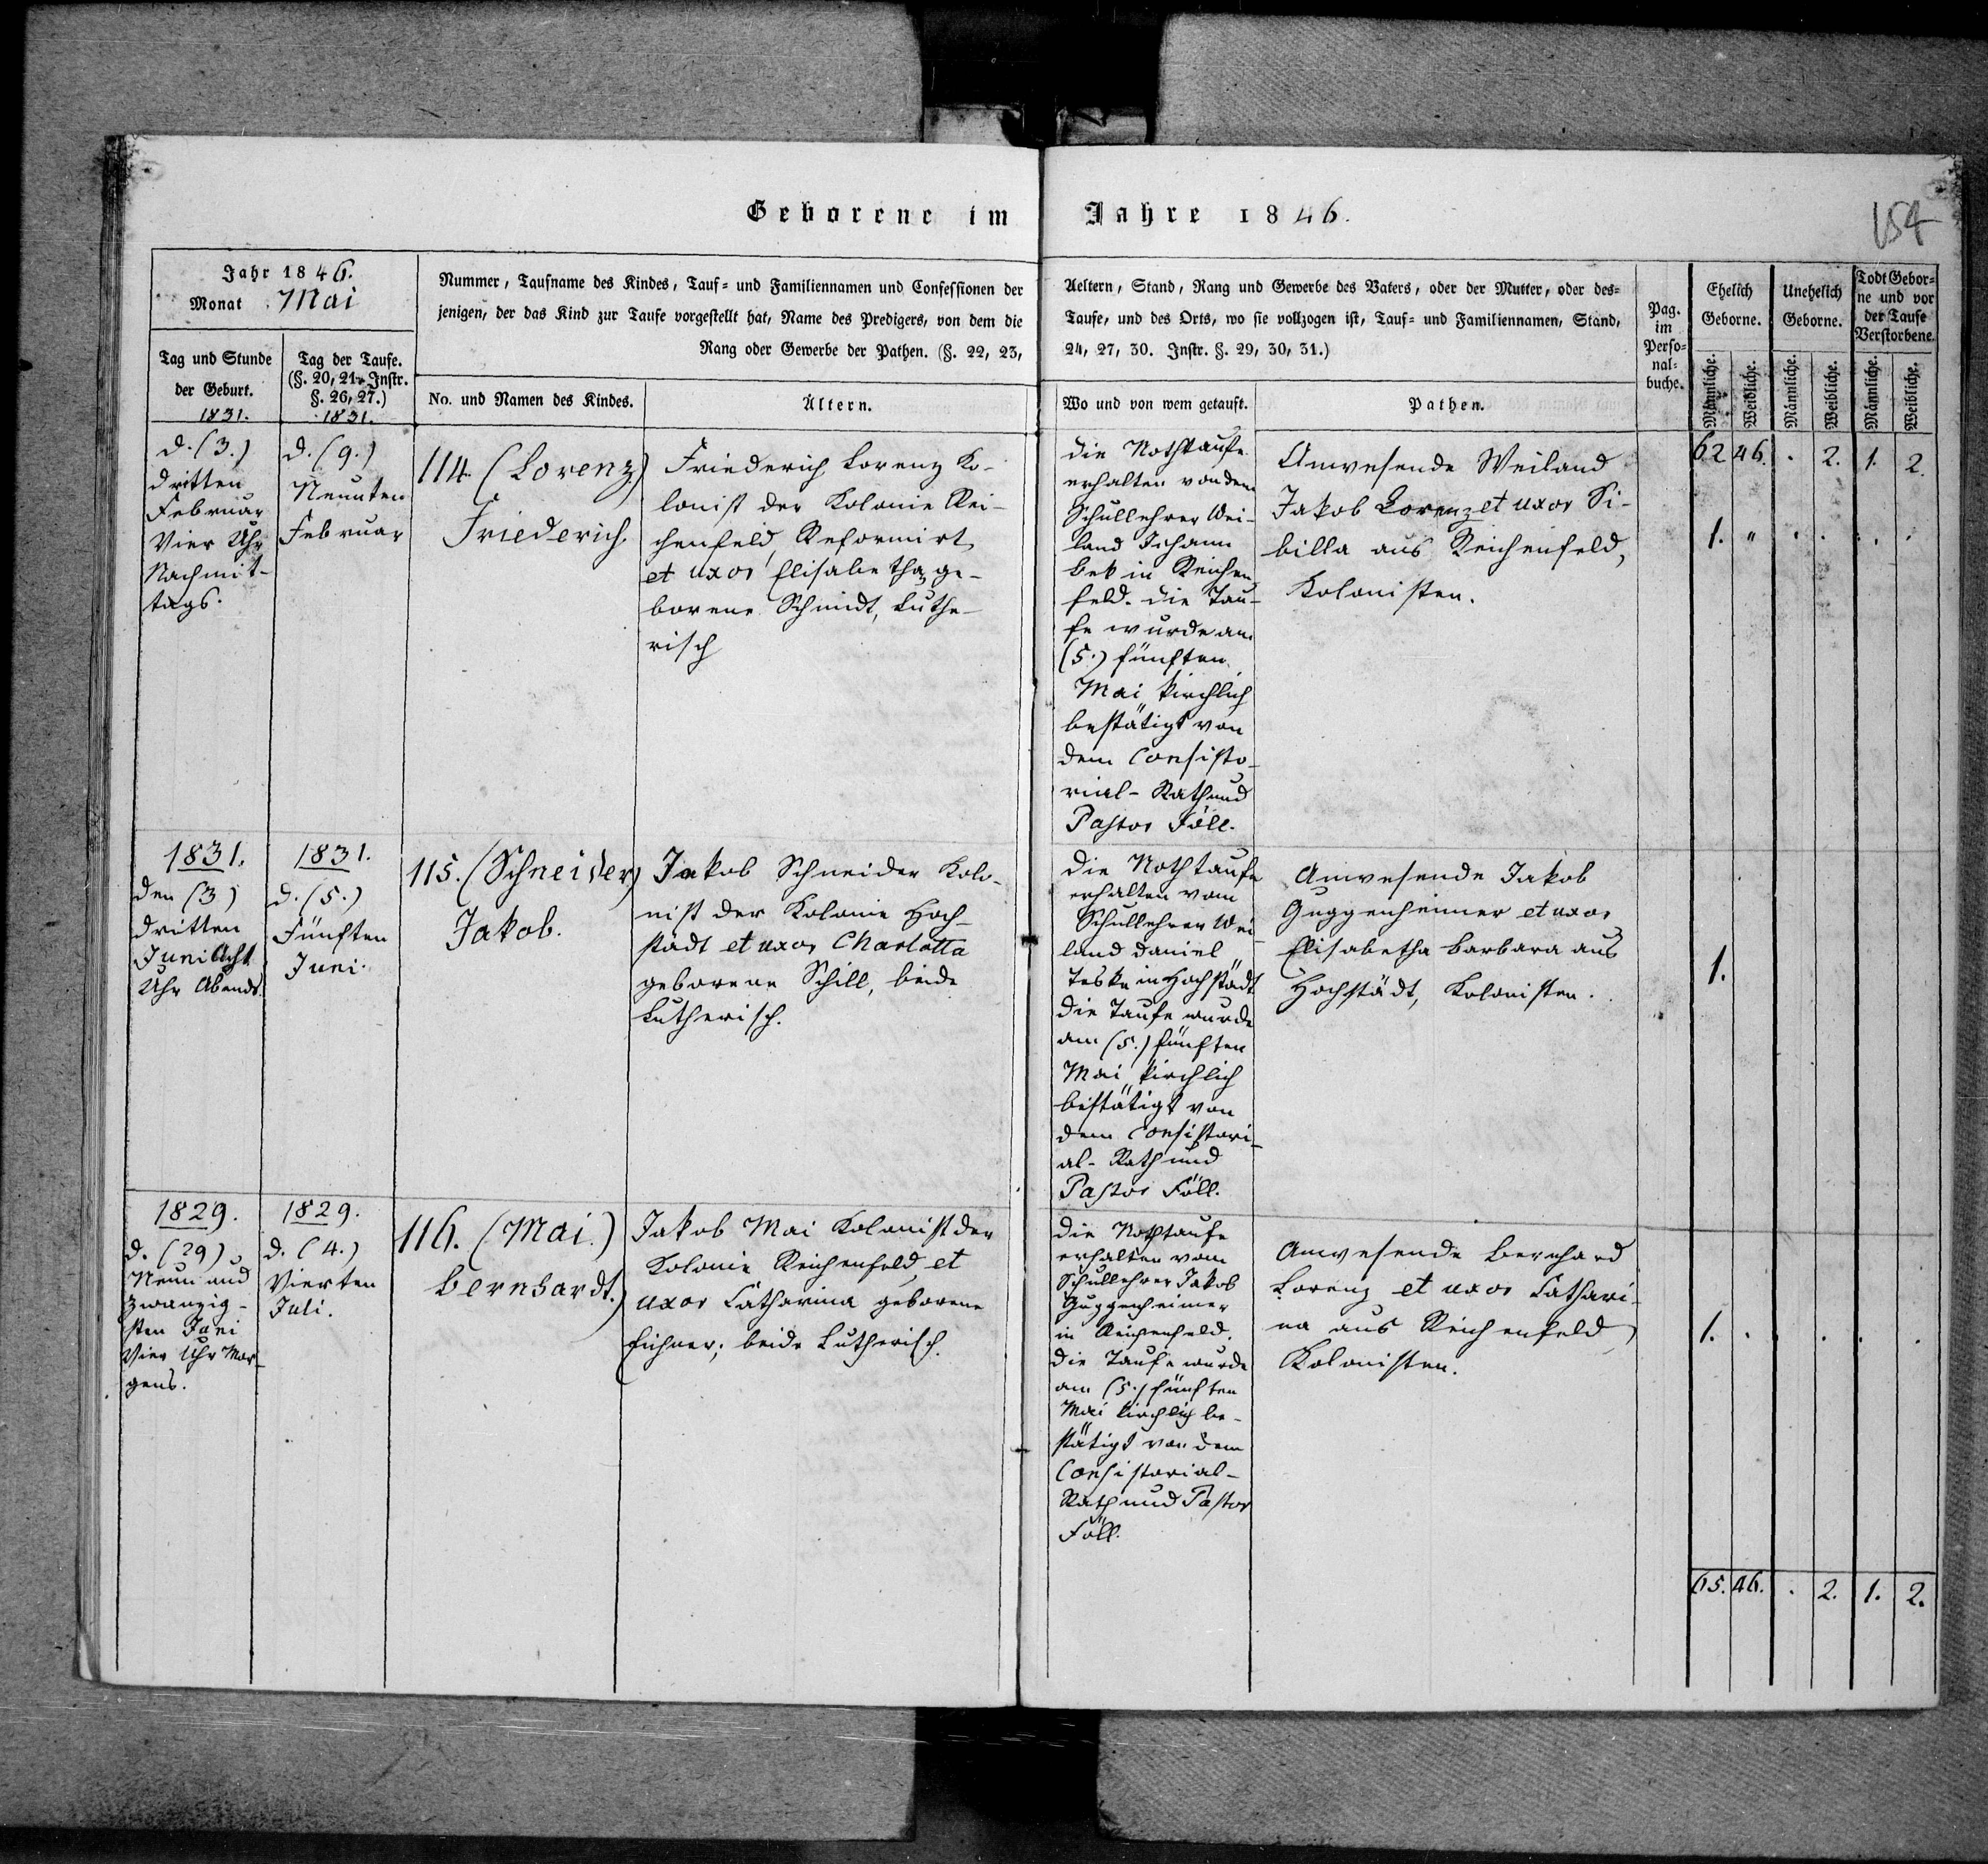 Geborene im Jahre 1846.
154
Jahr 1846.
Monat Mai
Tag und Stunde
der Geburt.
1831.
Tag der Taufe.
(§. 20, 21. Instr.
§. 26, 27.)
1831.
Nummer, Taufname des Kindes, Tauf- und Familiennamen und Confessionen der
jenigen, der das Kind zur Taufe vorgestellt hat, Name des Predigers, von dem die
Rang oder Gewerbe der Pathen. (§. 22, 23,
No. und Namen des Kindes.
Ältern.
Aeltern, Stand, Rang und Gewerbe des Vaters, oder der Mutter, oder des-
Taufe, und des Orts, wo sie vollzogen ist, Tauf- und Familiennamen, Stand,
24, 27, 30. Instr. §. 29, 30, 31.)
Wo und von wem getauft.
Pathen.
Pag.
im
Perso-
nal-
buche.
Ehelich
Geborne.
Unehelich
Geborne.
Todt Gebor-
ne und vor
der Taufe
Verstorbene.
Männliche.
Weibliche.
Männliche.
Weibliche.
Männliche.
Weibliche.
d. (3.)
dritten
Februar
Vier Uhr
Nachmit-
tags.
d. (9.)
Neunten
Februar
114. (Lorenz)
Friederich.
Friederich Lorenz Ko-
lonist der Kolonie Rei-
chenfeld, Reformirt,
et uxor Elisabetha ge-
borene Schmidt, Luthe-
risch
die Nothtaufe
erhalten von dem
Schullehrer Wei-
land Johann
Bek in Reichen-
feld. die Tau-
fe wurde am
(5.) fünften
Mai kirchlich
bestätigt von
dem Consisto-
rial-Rath und
Pastor Föll.
Anwesende Weiland
Jakob Lorenz et uxor Si-
billa aus Reichenfeld,
Kolonisten.
62 46. . 2. 1. 2.
1. " . . . .
1831.
den (3)
dritten
Juni Acht
Uhr Abends.
1831.
d. (5.)
Fünften
Juni.
115. (Schneider)
Jakob.
Jakob Schneider Kolo-
nist der Kolonie Hoch-
städt et uxor Charlotta
geborene Schill, beide
Lutherisch.
die Nothtaufe
erhalten vom
Schullehrer Wei-
land Daniel
Teske in Hochstädt.
die Taufe wurde
am (5.) fünften
Mai kirchlich
bestätigt von
dem Consistori-
al-Rath und
Pastor Föll.
Anwesende Jakob
Guggenheimer et uxor
Elisabetha Barbara aus
Hochstädt, Kolonisten.
1.
1829.
d. (29)
Neun und
zwanzig-
sten Juni
Vier Uhr Mor-
gens.
1829.
d. (4.)
Vierten
Juli.
116. (Mai.)
Bernhardt.
Jakob Mai Kolonist der
Kolonie Reichenfeld et
uxor Catharina geborene
Eichner; beide Lutherisch.
die Nothtaufe
erhalten vom
Schullehrer Jakob
Guggenheimer
in Reichenfeld.
die Taufe wurde
am (5.) fünften
Mai kirchlich be-
stätigt von dem
Consistorial-
Rath und Pastor
Föll.
Anwesende Bernhard
Lorenz et uxor Cathari-
na aus Reichenfeld,
Kolonisten.
1. . . . . .
65. 46. . 2. 1. 2.